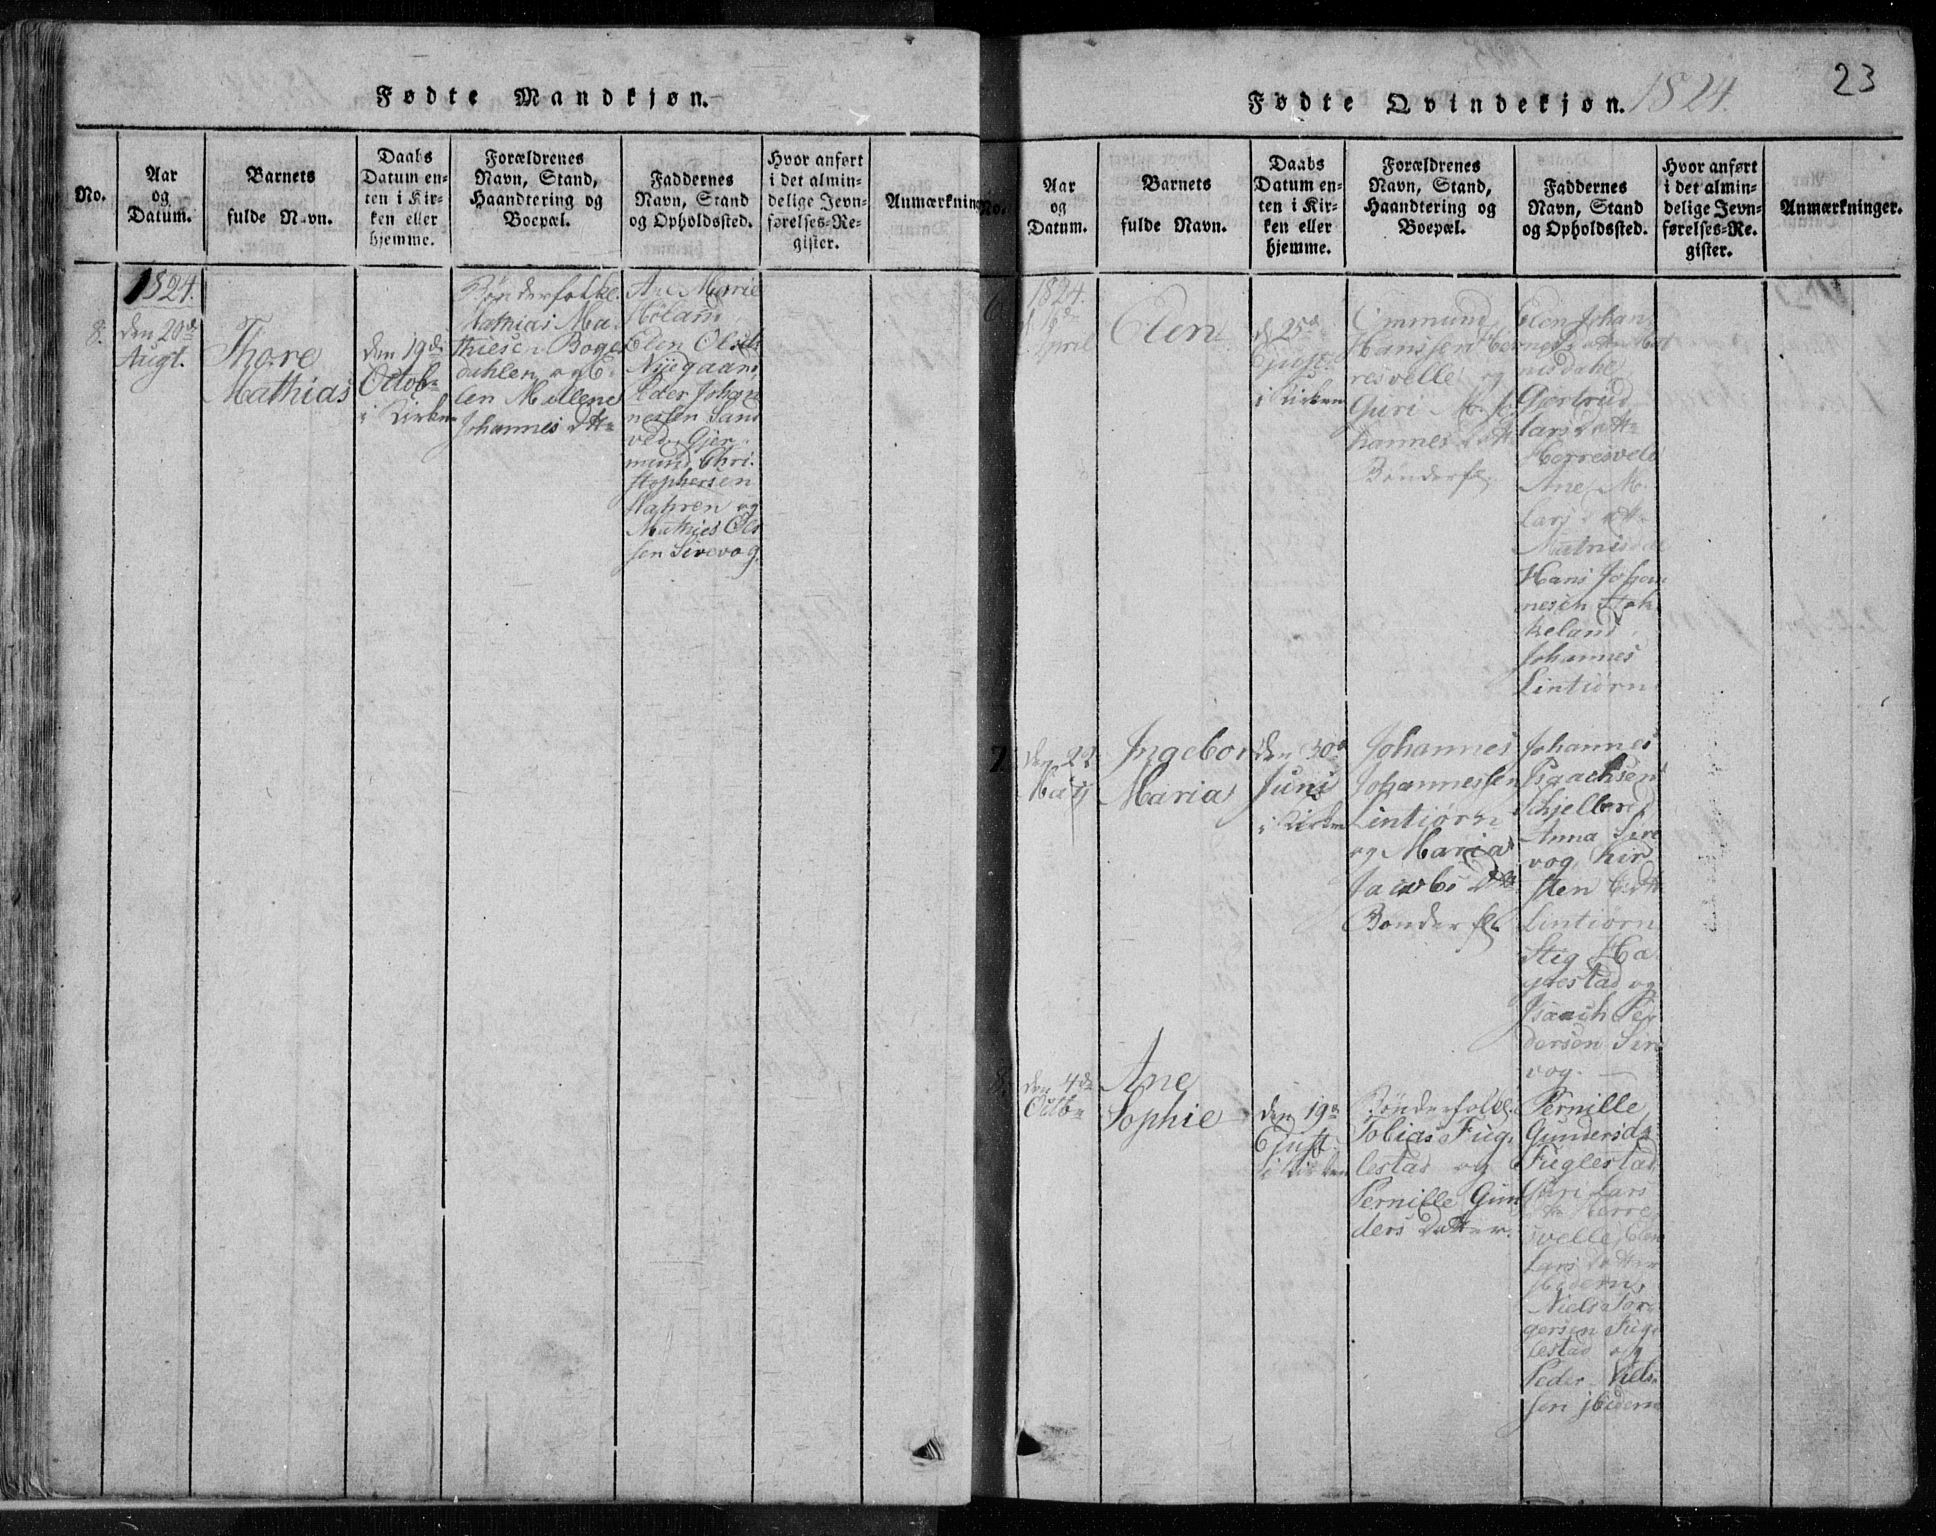 Fødte Mandkjøn.
No.
Aar
og
Datum.
Barnets
fulde Navn.
Daabs
Datum en-
ten i Kir-
ken eller
hjemme.
Forældrenes
Navn, Stand,
Haandtering og
Boepæl.
Faddernes
Navn, Stand
og Opholdssted.
Hvor anført
i det almin-
delige Jevn-
førelses-Re-
gister.
Anmærkning
1824.
8.
den 20de
Augt.
Thore
Mathias
den 19de
Octob
i Kirken
Bønderfolk.
Mathias Ma-
thiesen Boge-
dahlen og E-
len Mallene
Johannis Dtt
Ane Marie
Høland
Elen Ols
Nygaard
Peder Johan
nessen Sand
ved, Gjer-
mund Chri-
stophersen
Hahren og
Mathies Ol-
sen Sirevog.
Fødte Qvindekjøn. 1824.
23
No.
Aar
og
Datum.
Barnets
fulde Navn.
Daabs
Datum en-
ten i Kir-
ken eller
hjemme.
Forældrenes
Navn, Stand,
Haandtering og
Boepæl.
Faddernes
Navn, Stand
og Opholdssted.
Hvor anført
i det almin-
delige Jevn-
førelses-Re-
gister.
Anmærkninger.
6.
1824.
d 16de
April
Elen
d 25de
Ejusd
i Kirken
Ommund
Hanssen Her-
resvelle og
Guri Jo-
hannes Datt
Bønderf.
Elen Johan-
nisdahl
Gjertrud
Lars Datt
Herresvel
Ane M.
Lars Datt
Hans Johan
nesen Hok-
keland
Johannes
Lintiørn
7.
den 22
May
Ingebor
Maria
den 30
Juni
i Kirken
Johannes
Johannessen
Lintiørn
og Maria
Jacobs Dtt
Bønderfol
Johannes
Isaachsen
Skjelbred
Anna Sire
vog, Kir
sten E. Dtt
Lintiørn
Stig Ha-
gvestad og
Isaach Pe-
dersen Sire
vog.
8.
den 4de
Octb
Ane
Sophie
den 19
Ejusd
i Kirken
Bønderfolk.
Tobias Fug-
lestad og
Pernille Gun
ders Datter.
Pernille
Gundersd
Fuglestad
Guri Lars
Dtr Herre
svelle, Elen
Lars Datter
ibidem,
Niels Tor-
gersen Fug-
lestad og
Peder Niels-
sen ibidem